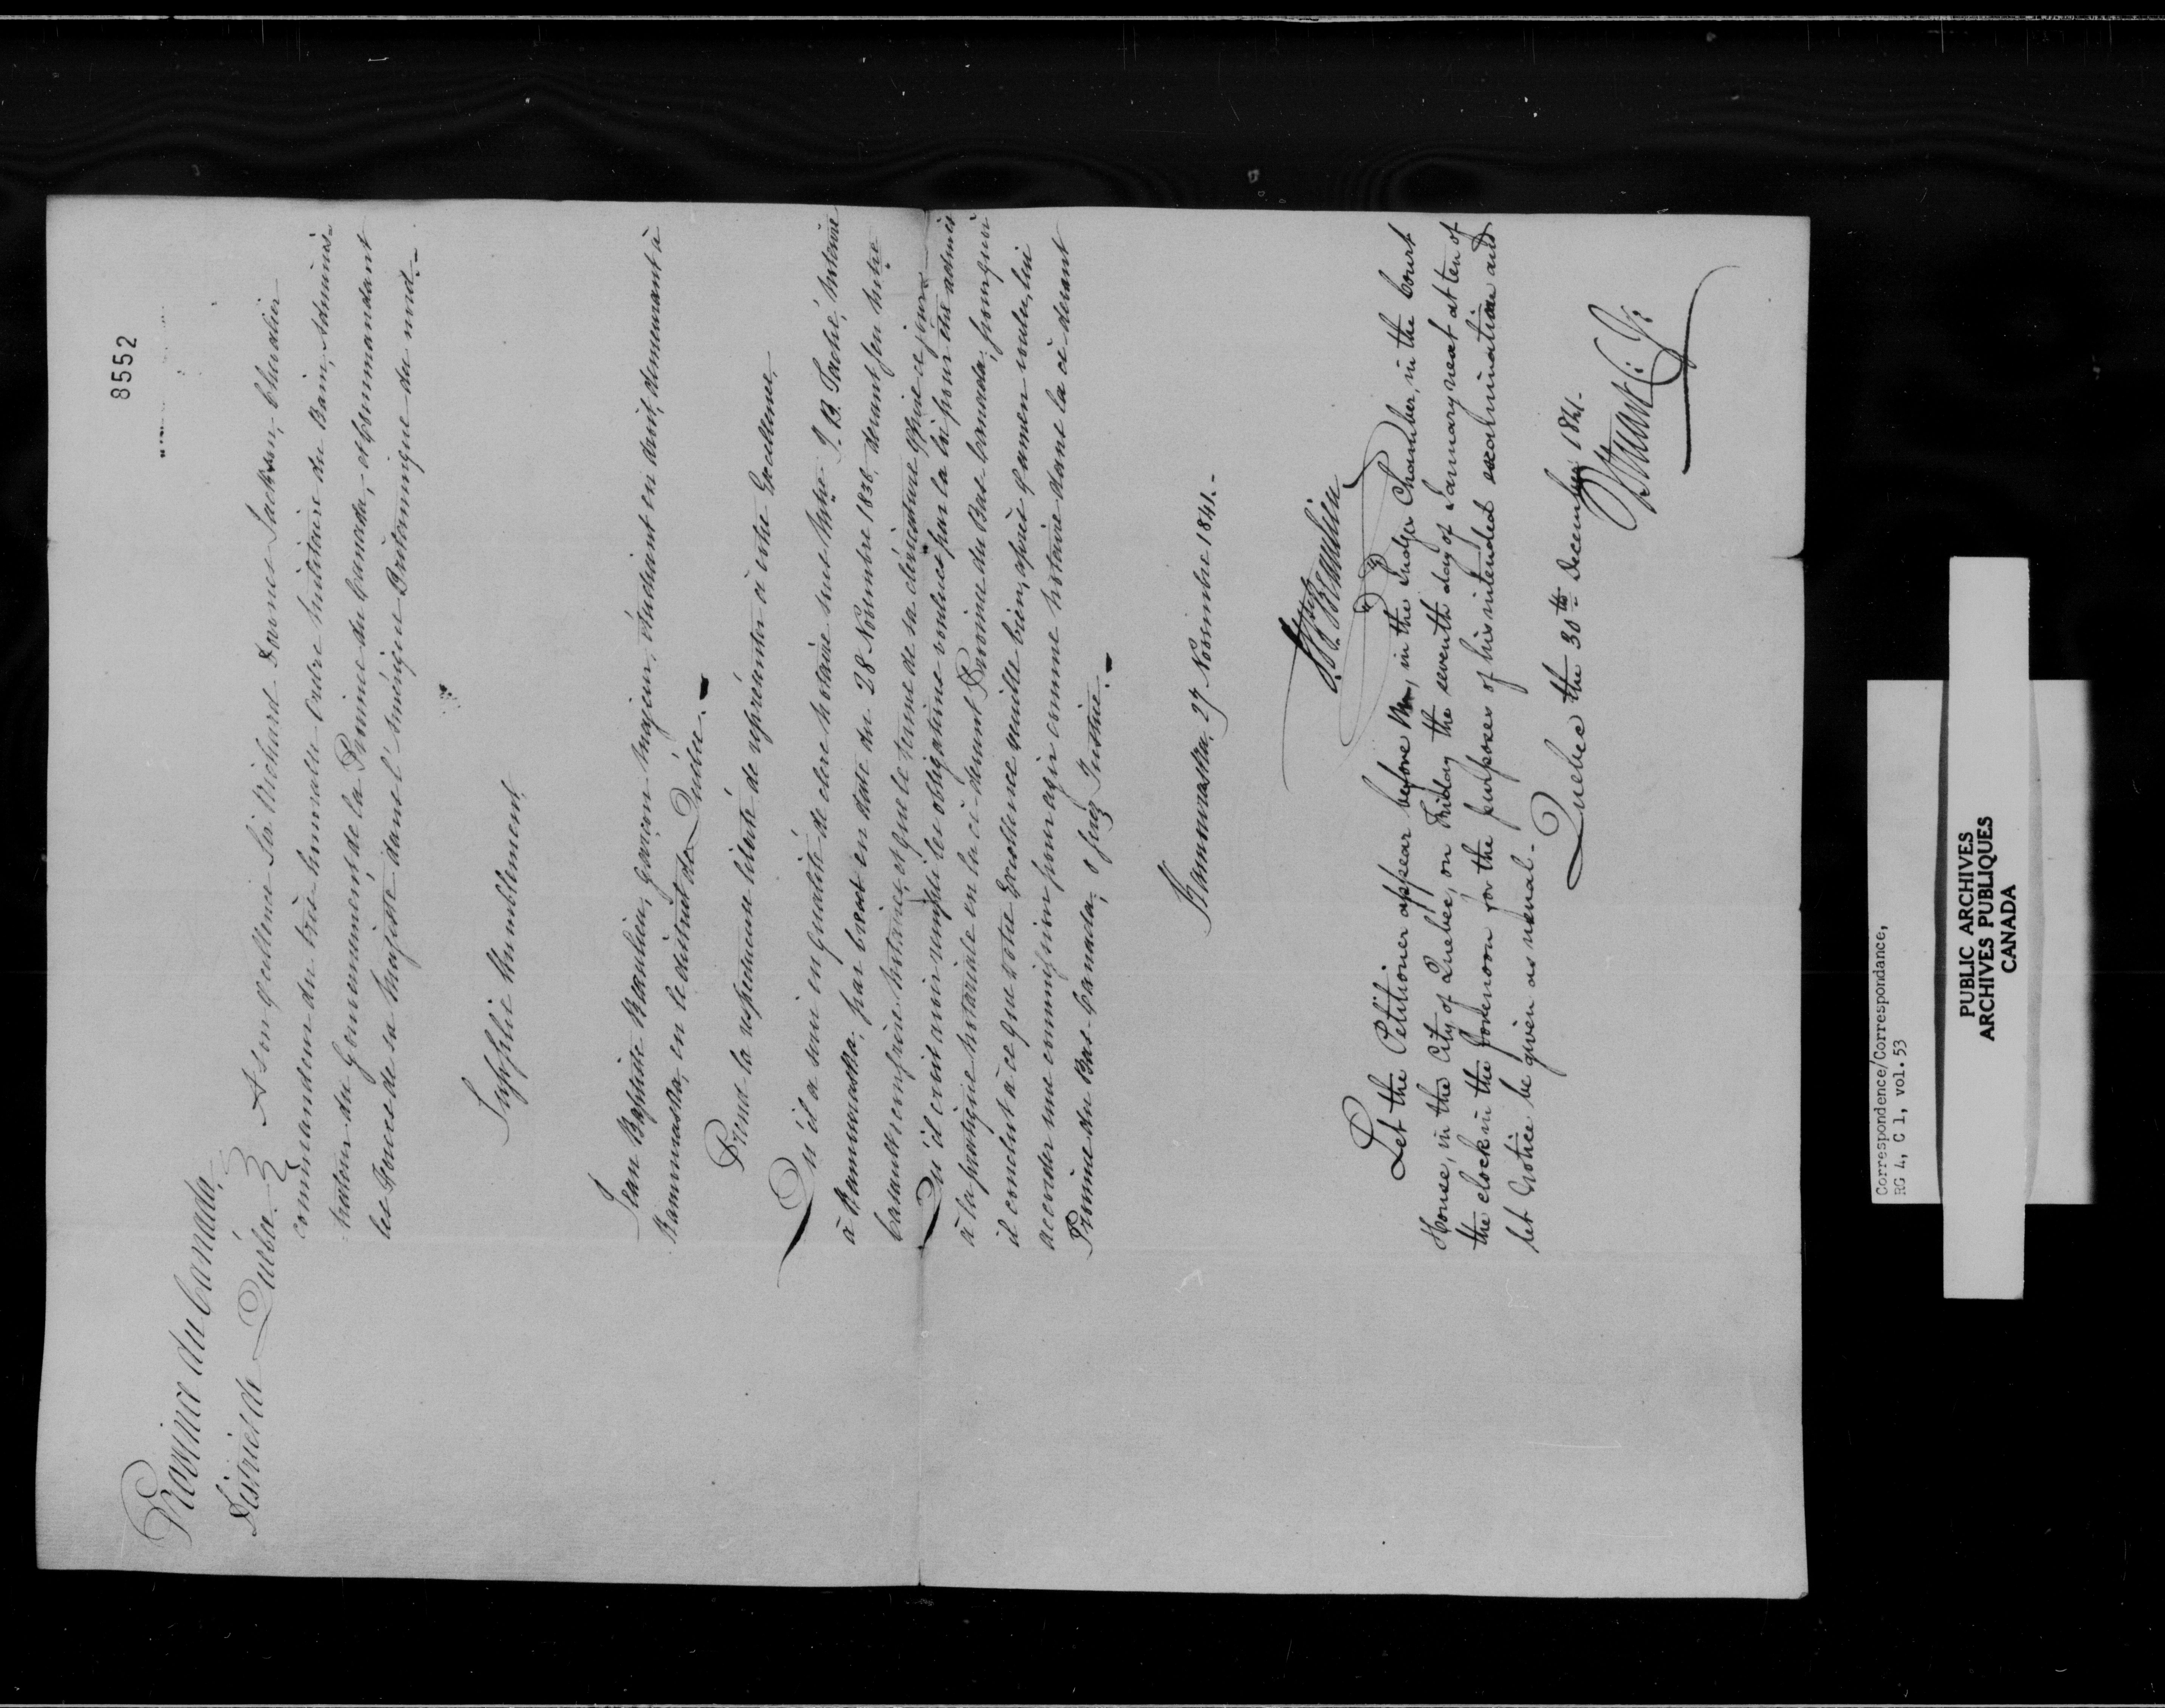 8552
Province du Canada
District de Québec
A son Excellence Sir Richard Downes Jackson, Chevalier
commandeur du très-honorable Ordre Militaire du Bain, Adminis-
trateur du Gouvernement de la Province du Canada, et Commandant
les Forces de sa Majesté dans l'Amérique Britannique du nord.-
Supplie Humblement
Jean Baptiste Beaulieu, garçon majeur, étudiant en droit, demeurant à
Kamouraska, en le district de Québec.-
Prend la respectueuse liberté de représenter à votre Excellence,
Qu'il a servi en qualité de clerc notaire sous Mtre J. B. Taché, Notaire
à Kamouraska, par brevet en date du 28 Novembre 1836, devant feu Mtre
et confrère Notaires, et que le terme de sa cléricature expire ce jour.-
Qu'il croit avoir rempli les obligations voulues par la loi pour être admis
à la pratique notariale en la ci-devant Province du Bas Canada, pourquoi
il conclut à ce que votre Excellence veuille bien, après examen voulu, lui
accorder une commission pour agir comme Notaire dans la ci-devant
Province du Bas-Canada, & ferez Justice.-
Kamouraska, 27 Novembre 1841.-
J. Bte Beaulieu
Let the Petitioner appear before Me, in the Judges Chamber, in the Court
House, in the City of Quebec, on Friday the seventh day of January next at ten of
the clock in the forenoon for the purposes of his intended examination and
let Notice be given as usual-
Quebec the 30th December 1841.-
J Stuart C: J:
Correspondence/Correspondance,
RG 4, C 1, vol. 53
PUBLIC ARCHIVES
ARCHIVES PUBLIQUES
CANADA